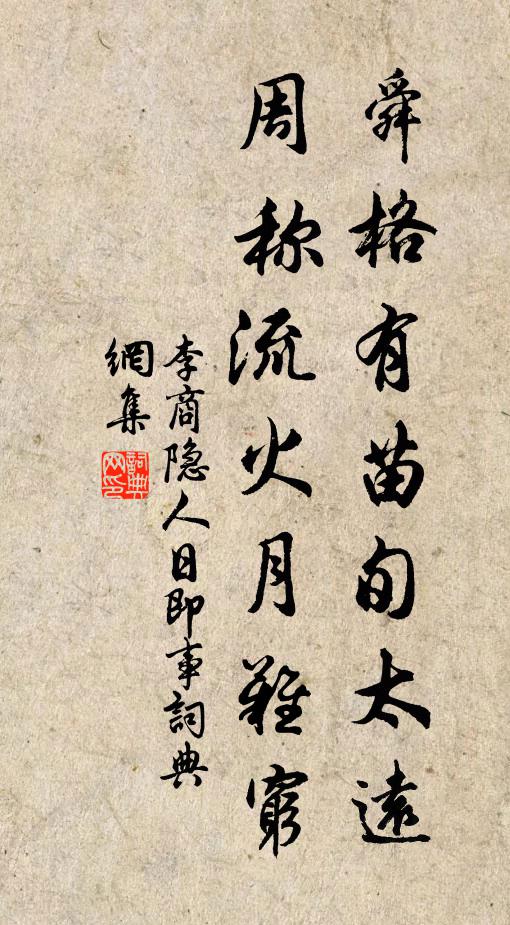 舜格有苗旬太遠
周称流火月難窮
李商隐人日即事詞典
網集
詞典
网印